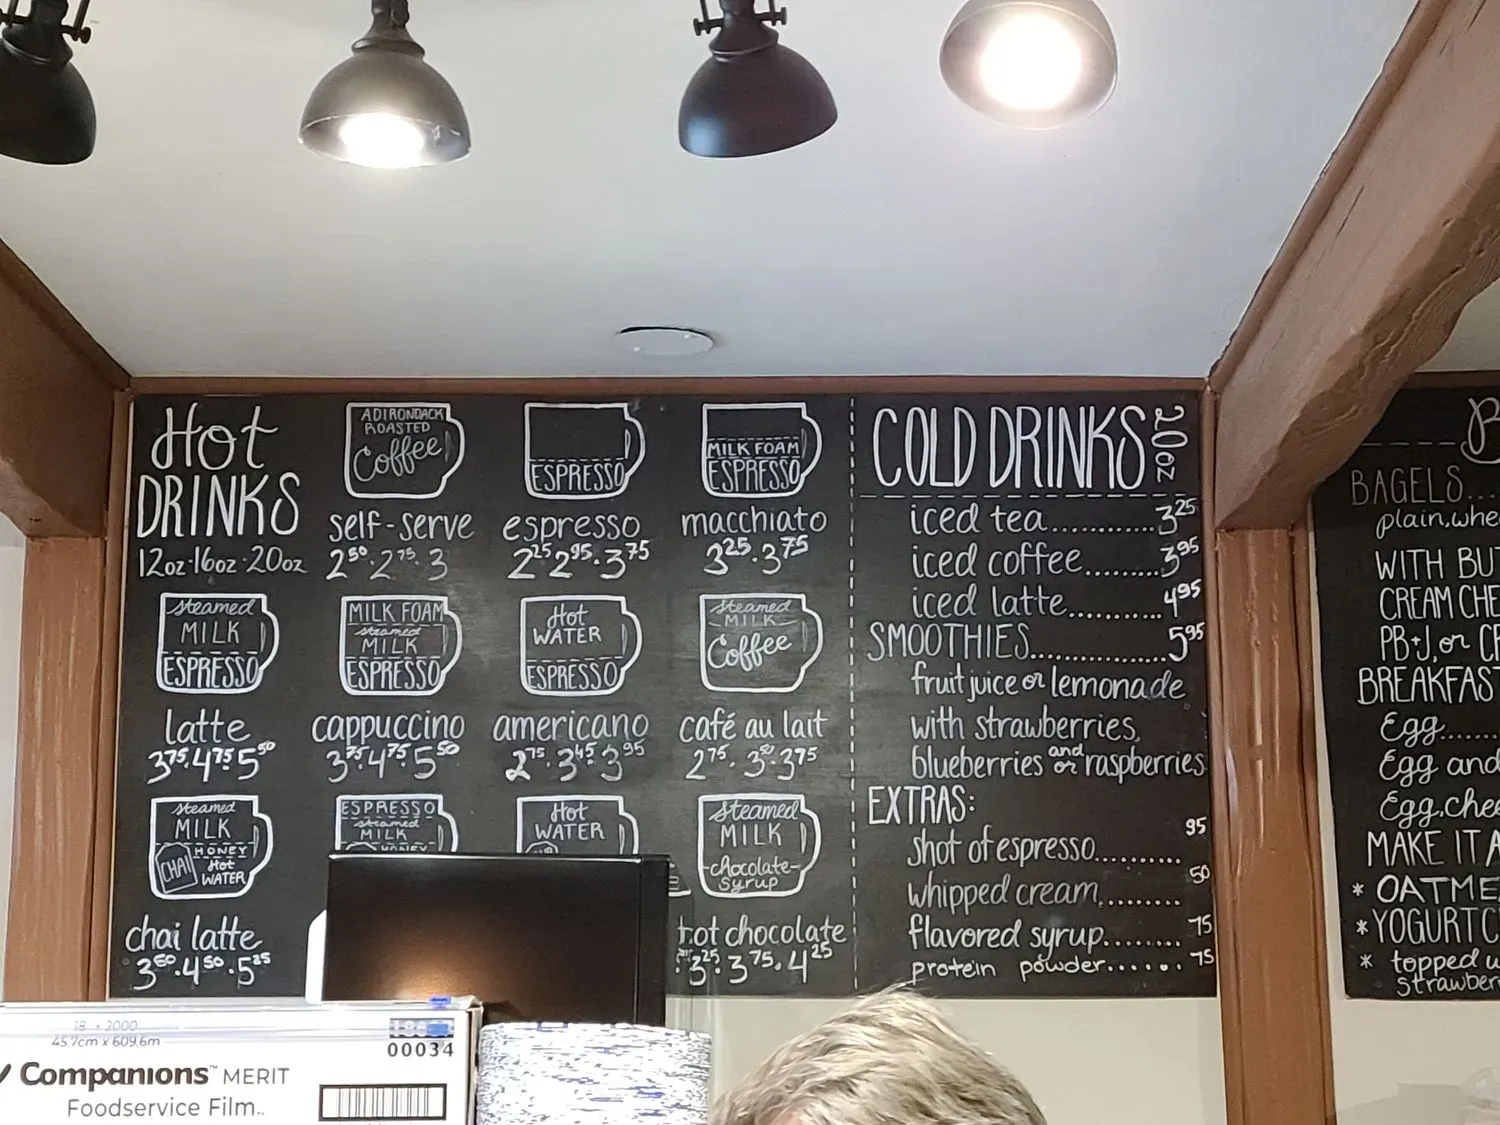 Hot
DRINKS
12oz·16oz·20oz
ADIRONDACK
ROASTED
Coffee
self-serve
2⁵⁰·2⁷⁵·3
ESPRESSO
espresso
2²⁵·2⁹⁵·3⁷⁵
MILK FOAM
ESPRESSO
macchiato
3²⁵·3⁷⁵
steamed
MILK
ESPRESSO
latte
3⁷⁵·4⁷⁵·5⁵⁰
MILK FOAM
steamed
MILK
ESPRESSO
cappuccino
3⁷⁵·4⁷⁵·5⁵⁰
Hot
WATER
ESPRESSO
americano
2⁷⁵·3⁴⁵·3⁹⁵
steamed
MILK
Coffee
café au lait
2⁷⁵·3⁵⁰·3⁷⁵
steamed
MILK
HONEY
CHAI
Hot
WATER
chai latte
3⁵⁰·4⁵⁰·5²⁵
ESPRESSO
steamed
MILK
HONEY
Hot
WATER
steamed
MILK
chocolate-
syrup
hot chocolate
3²⁵·3⁷⁵·4²⁵
COLD DRINKS 20oz
iced tea............3²⁵
iced coffee........3⁹⁵
iced latte..........4⁹⁵
SMOOTHIES..................5⁹⁵
fruit juice or lemonade
with strawberries,
blueberries and/or raspberries
EXTRAS:
shot of espresso.......... 95
whipped cream.......... 50
flavored syrup........ 75
protein powder...... 75
BAGELS...
plain, whe
WITH BU
CREAM CHE
PB+J, or C
BREAKFAS
Egg.......
Egg and
Egg, chee
MAKE IT A
* OATME
* YOGURT
* topped
strawber
45.7cm x 609.6m
00034
Companions™ MERIT
Foodservice Film